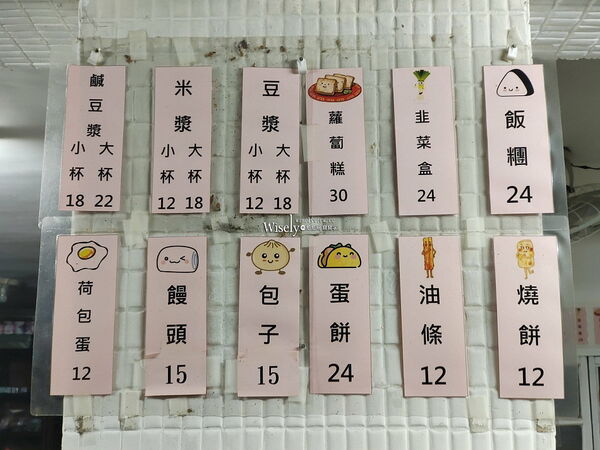 鹹豆漿
小杯 大杯
18 22
米漿
小杯 大杯
12 18
豆漿
小杯 大杯
12 18
蘿蔔糕
30
韭菜盒
24
飯糰
24
Wisely
荷包蛋
12
饅頭
15
包子
15
蛋餅
24
油條
12
燒餅
12